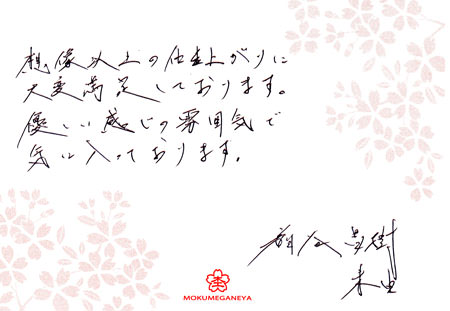 想像以上の仕上がりに
大変満足しております。
優しい感じの雰囲気で
気に入っております。
MOKUMEGANEYA